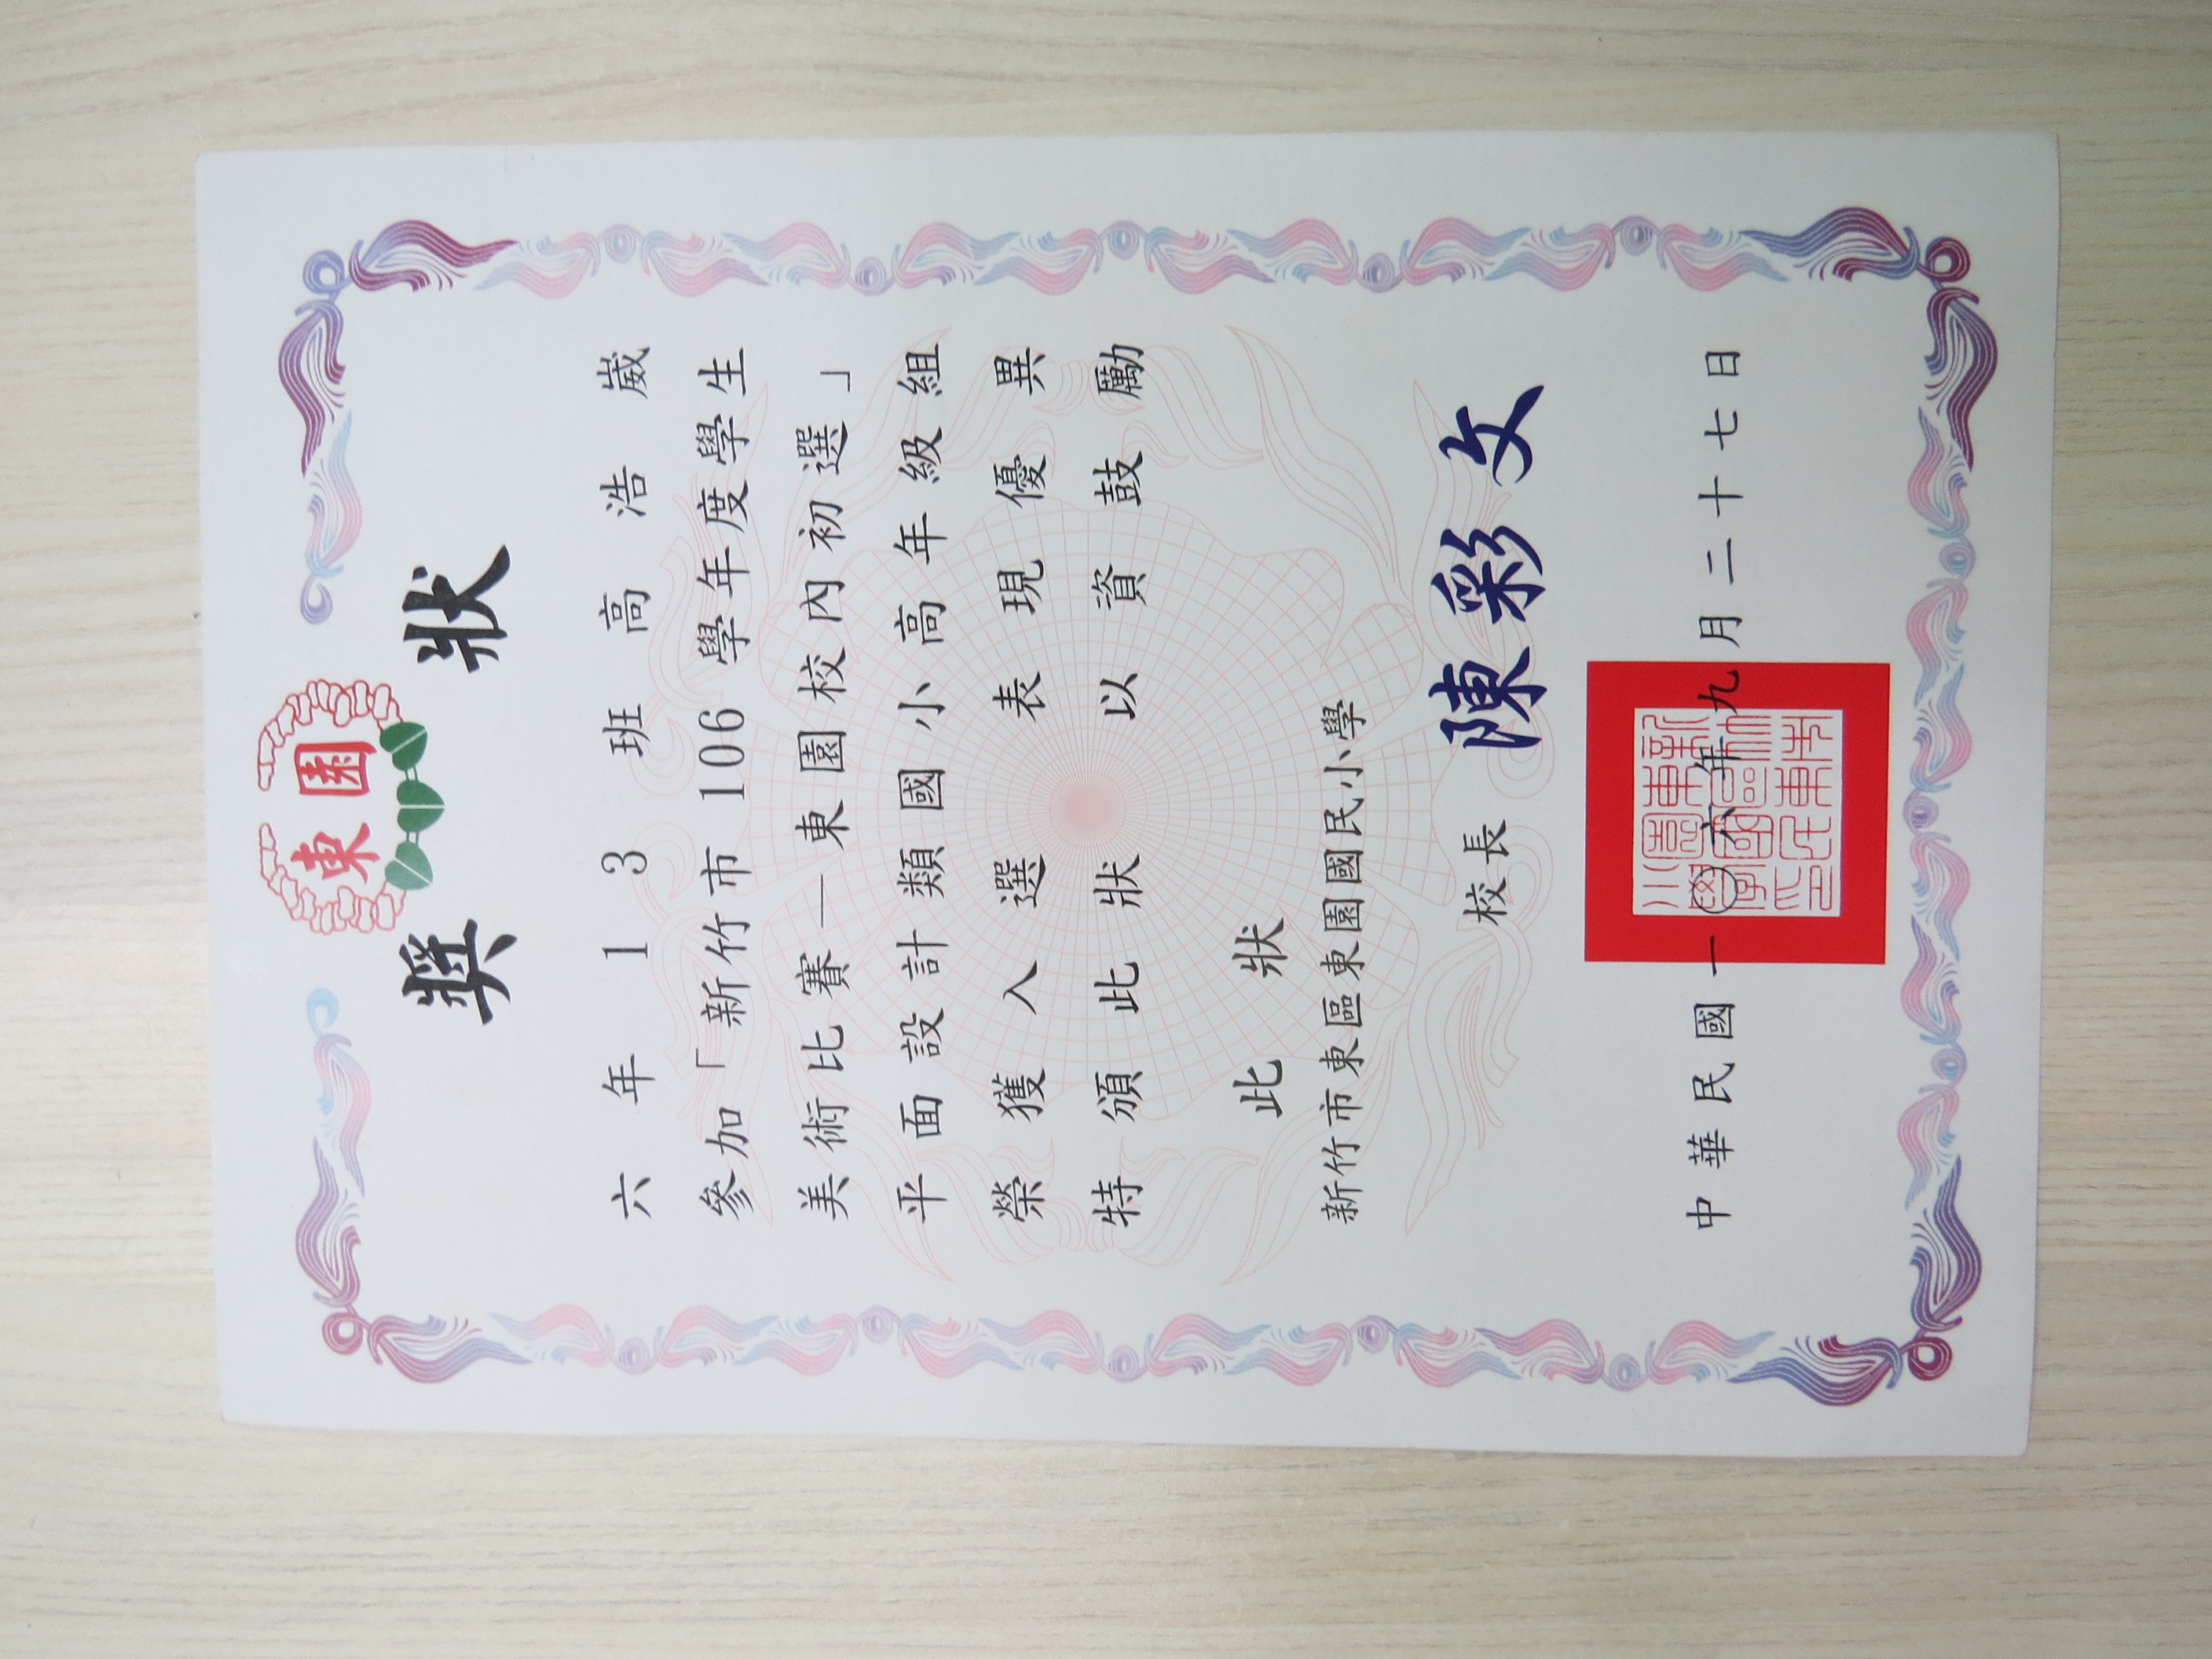 東園
獎狀
六年13班高浩崴
參加「新竹市106學年度學生
美術比賽—東園校內初選」
平面設計類國小高年級組
榮獲入選表現優異
特頒此狀以資鼓勵
此狀
新竹市東區東園國民小學
校長 陳彩文
中華民國一〇六年九月二十七日